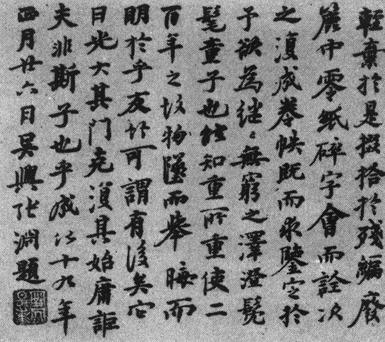 輕棄於是掇拾於殘編廢
簏中零紙碎字會而詮次
之復成卷帙既而求鑒定於
予欲為繼繼無窮之澤澄髡
髦童子也能知重所重使二
百年之故物墜而舉晦而
明於乎友竹可謂有後矣它
日光大其門克復其始庸詎
夫非斯子也乎成化十九年
四月廿六日吳興張淵題